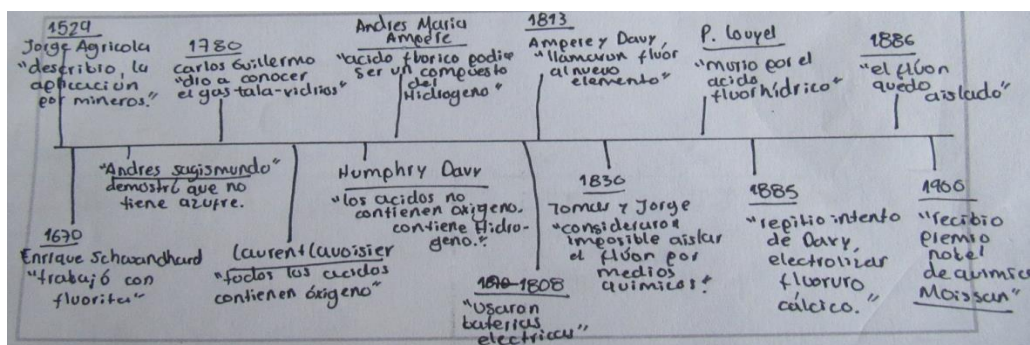 1529
Jorge Agricola
"describio, la
aplicación
por mineros."
1780
Carlos Guillermo
"dio a conocer
el gas-tala-vidrios"
Andres Maria
Ampere
"acido fluorico podia
ser un compuesto
del
Hidrogeno"
1813
Ampere y Davy,
"llamaron fluor
al nuevo
elemento"
P. Louyel
"murio por el
acido
fluorhídrico"
1886
"el flúor
quedo
aislado"
1670
Enrique Schwandhard
"trabajó con
fluorita"
"Andres sagismundo"
demostró que no
tiene azufre.
Laurent Lavoisier
"todos los acidos
contienen óxigeno"
Humphry Davy
"los acidos no
contienen óxigeno.
contiene Hidro-
geno."
1808
"Usaron
baterias
electricas"
1830
Tomas y Jorge
"consideraron
imposible aislar
el flúor por
medios
quimicos."
1885
"repitio intento
de Davy,
electrolizar
fluoruro
cálcico."
1906
"recibio
premio
nobel
de quimica
Moissan"